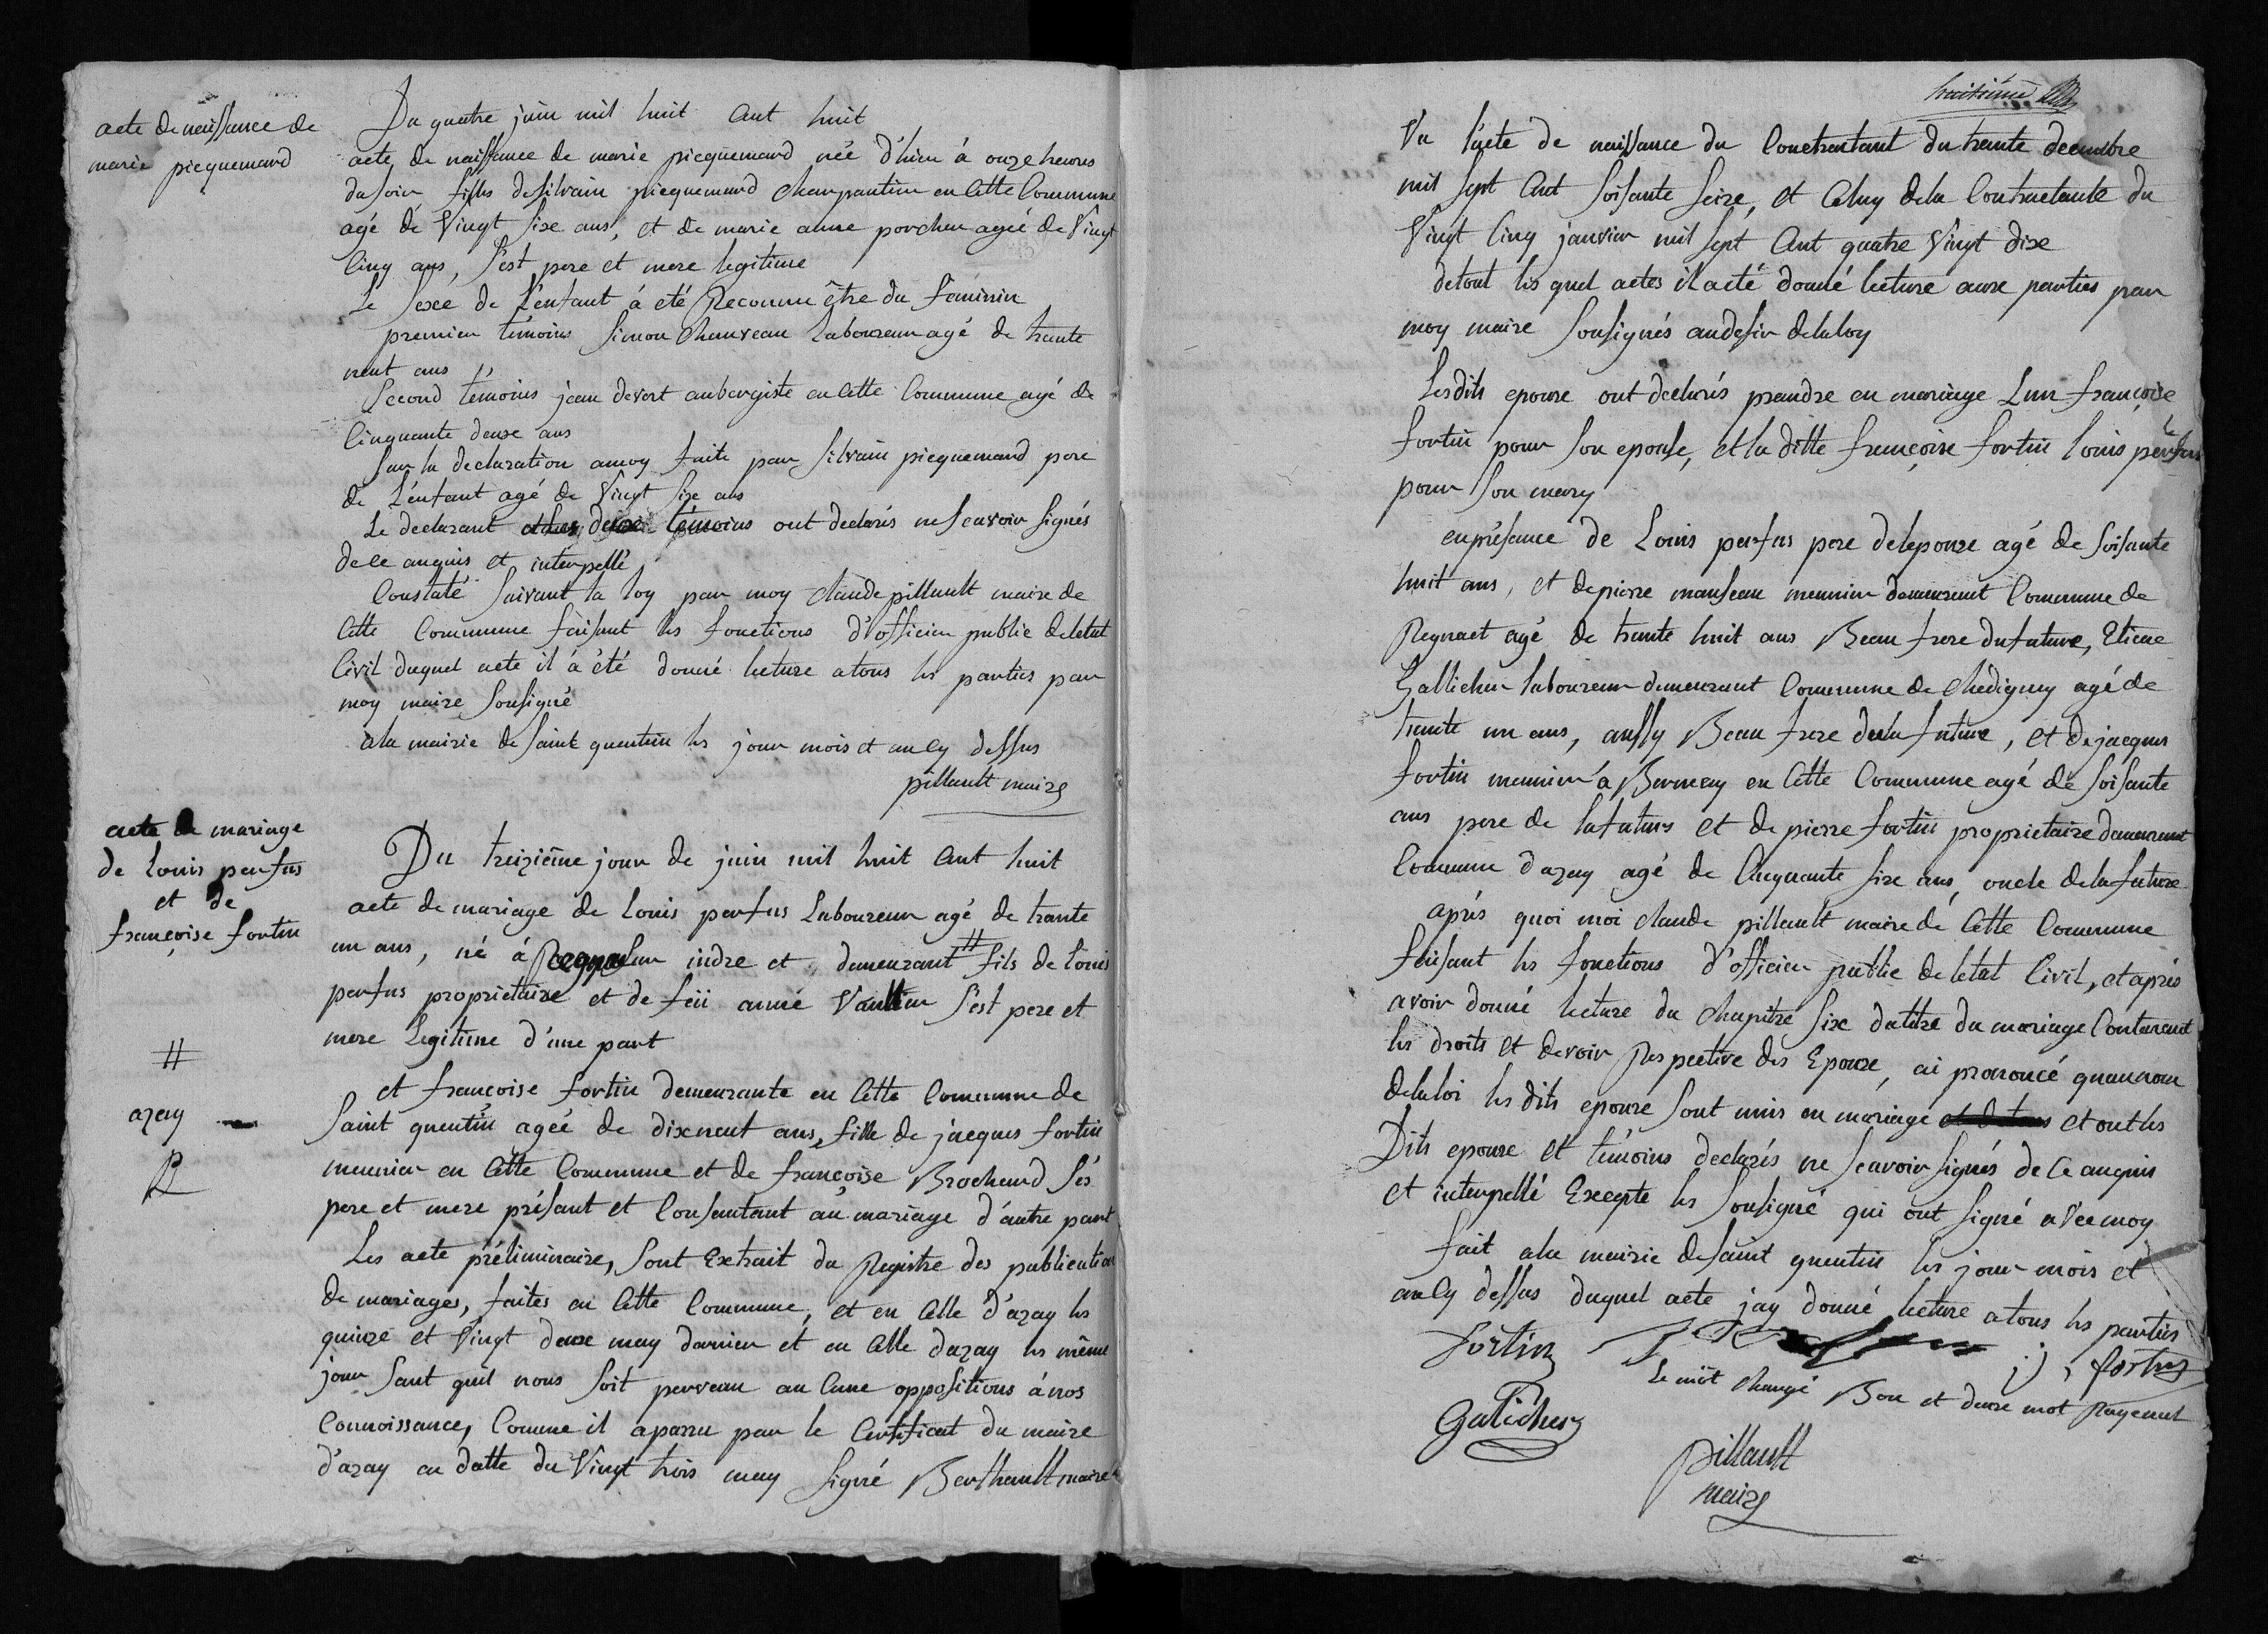 acte de naissance de
marie picquemard
Du quatre juin mil huit Cent huit
acte de naissance de marie picquemard née d'hier á onze heures
du soir filles de silvain picquemard charpantier en Cette Commune
agé de Vingt six ans, et de marie anne porcher ageé de Vingt
Cinq ans, s'est pere et mere legitime
Le sexe de L'enfant á eté Reconnu être du feminin
premier témoins simon Chauveau Laboureur agé de trante
neuf ans
Second témoins jean devert aubergiste en Cette Commune agé de
Cinquante deuxe ans
sur la declaration amoy faite par silvain picquemard pere
de L'enfant agé de Vingt six ans
Le declarant et les deuxe témoins ont declarés ne scavoir signés
de ce anquis et interpellé
Constaté suivant la loy par moy claude pillault maire de
Cette Commune faisant les fonctions d'officier public deletat
Civil duquel acte il á été donné lecture atous les parties par
moy maire sousigné
ala mairie de saint quentin les jour mois et an Cy dessus
pillault maire
acte de mariage
de louis perfus
et de
françoise fortin
Du treiziéme jour de juin mil huit Cent huit
acte de mariage de louis perfus Laboureur agé de trante
un ans, né á sur indre et demeurant # fils de louis
perfus proprietaire et de feü anne Vaullier s'est pere et
mere Legitime d'une part
#
azay
P
et françoise fortin demeurante en Cette Commune de
saint quentin ageé de dixneuf ans, fille de jacques fortin
meunier en Cette Commune et de françoise Brochard sés
pere et mere présant et Consantant au mariage d'autre part
Les acte préliminaire, sont Extrait du Registre des publication
de mariages, faites en Cette Commune, et en Celle d'azay les
quinze et Vingt deuxe may dernier et en Celle dazay les même
jour sant quil nous soit perveau au Cune oppositions á nos
Connoissance, Comme il aparru par le Certificat du maire
d'azay en datte du Vingt trois may signé Berthault maire
huitiéme
Vu l'acte de naissance du Contractant du trante decembre
mil sept Cent soisante seize, et Celuy dela Contractante du
Vingt Cinq janvier mil sept Cent quatre Vingt dixe
detout les quel actes il acté donné lecture auxe parties par
moy maire sousignés audesir delaloy
Lesdits epouxe ont declarés prandre en mariage Lun françoise
fortin pour son epouse, et la ditte françoise fortin louis perfus
pour son mary
enprésance de Louis perfus pere delepouxe agé de soisante
huit ans, et depierre manseau meunier demeurant Commune de
Regnaet agé de trante huit ans Beau frere dufuture, Etiene
Gallicher laboureur demeurant Commune de Chedigny agé de
trante un ans, aussy Beau frere dela future, et dejacques
fortin meunier á Bermay en Cette Commune agé de soisante
ans pere de lafuture et de pierre fortin proprietaire demeurant
Commune d'azay agé de Cinquante six ans, oncle delafuture
aprés quoi moi claude pillault maire dé Cette Commune
faisant les fonctions d'officier public deletat Civil, et aprés
avoir donné lecture du chapitre six dutitre du mariage Contenant
les droits et devoir Respective des Epouxe, ai prononcé quaunom
delaloi les dits epouxe sont unis en mariage et ont les
Dits epouxe et témoins declarés ne scavoir signés de Ce anquis
et interpellé Excepte les sousigné qui ont signé avec moy
fait ala mairie desaint quentin les jour mois et
an Cy dessus duquel acte jay donné lecture atous les parties
fortin
j. fortin
Le môt changé Bon et deuxe mot Rayenul
Galicher
pillault
maire